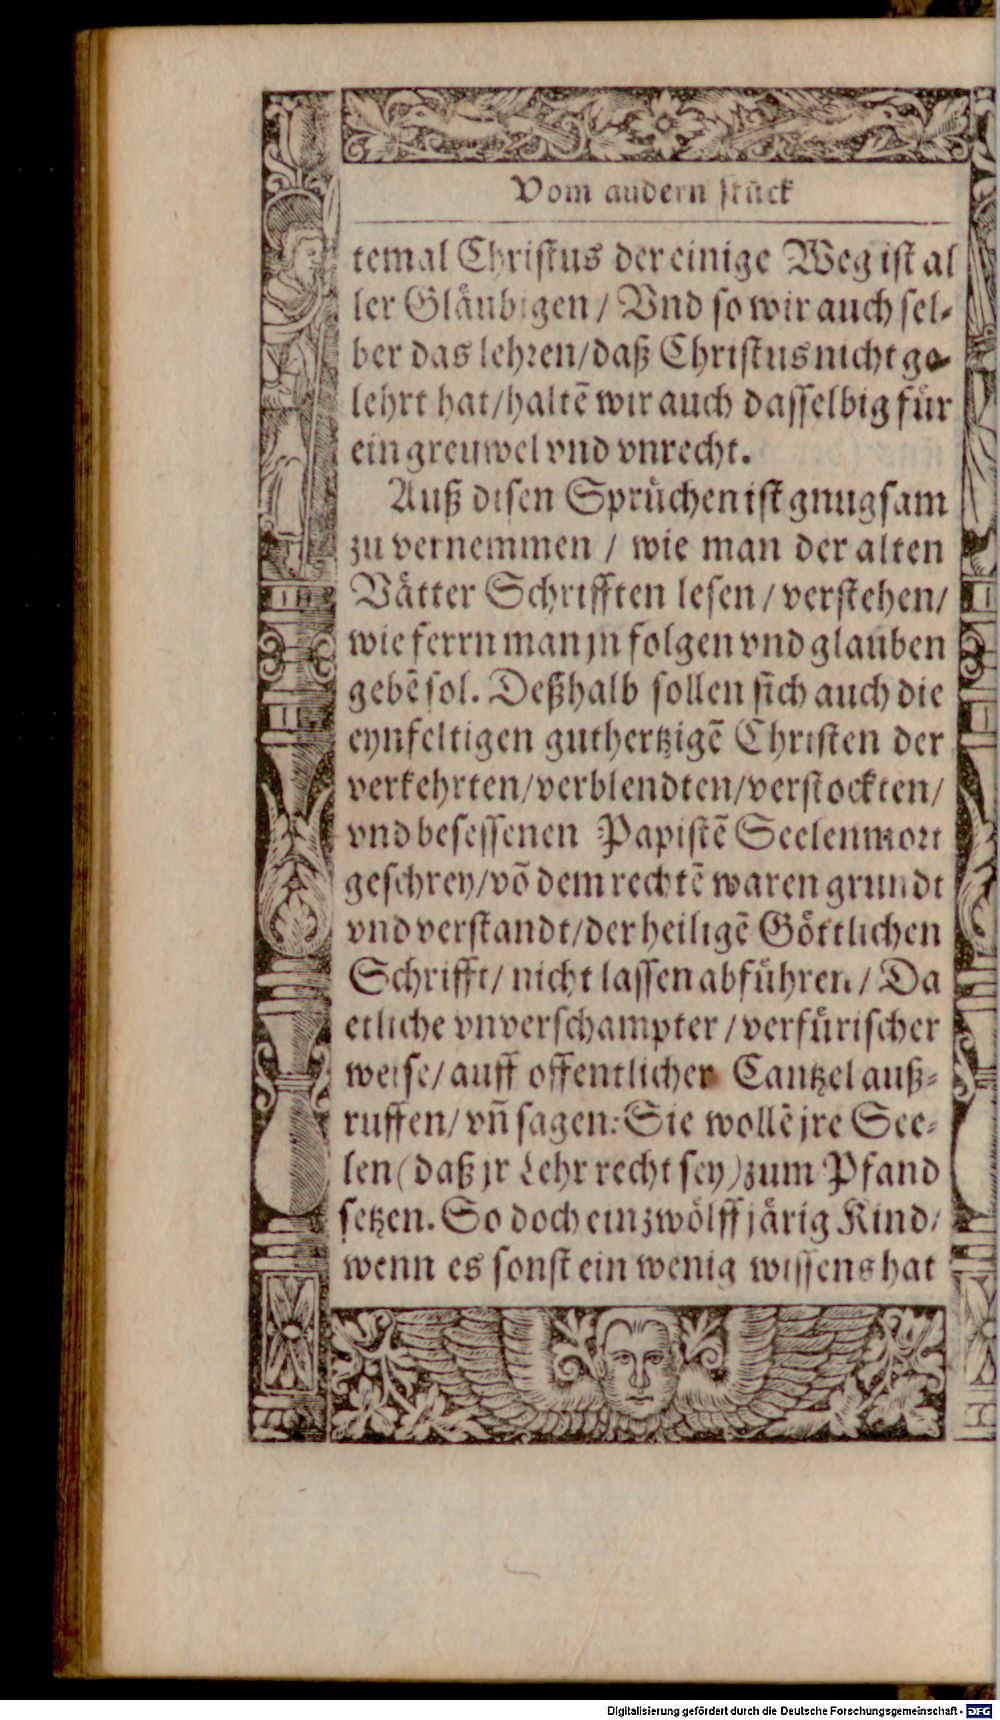 Vom andern stuͤck
temal Christus der einige Weg ist al
ler Glaͤubigen / Vnd so wir auch sel⸗
ber das lehren/daß Christus nicht ge⸗
lehrt hat/haltẽ wir auch dasselbig fuͤr
ein greuwel vnd vnrecht.
Auß disen Spruͤchen ist gnugsam
zu vernemmen / wie man der alten
Vaͤtter Schrifften lesen / verstehen/
wie ferrn man jn folgen vnd glauben
gebẽ sol. Deßhalb sollen sich auch die
eynfeltigen guthertzigẽ Christen der
verkehrten/verblendten/verstockten/
vnd besessenen Papistẽ Seelenmort
geschrey/võ dem rechtẽ waren grundt
vnd verstandt/der heiligẽ Goͤttlichen
Schrifft/ nicht lassen abfuͤhren / Da
etliche vnverschampter /verfuͤrischer
weise/ auff offentlicher Cantzel auß⸗
ruffen/ vñ sagen: Sie wollẽ jre See⸗
len (daß jr Lehr recht sey) zum Pfand
setzen. So doch ein zwoͤlff jaͤrig Kind/
wenn es sonst ein wenig wissens hat
Digitalisierung gefördert durch die Deutsche Forschungsgemeinschaft - DFG